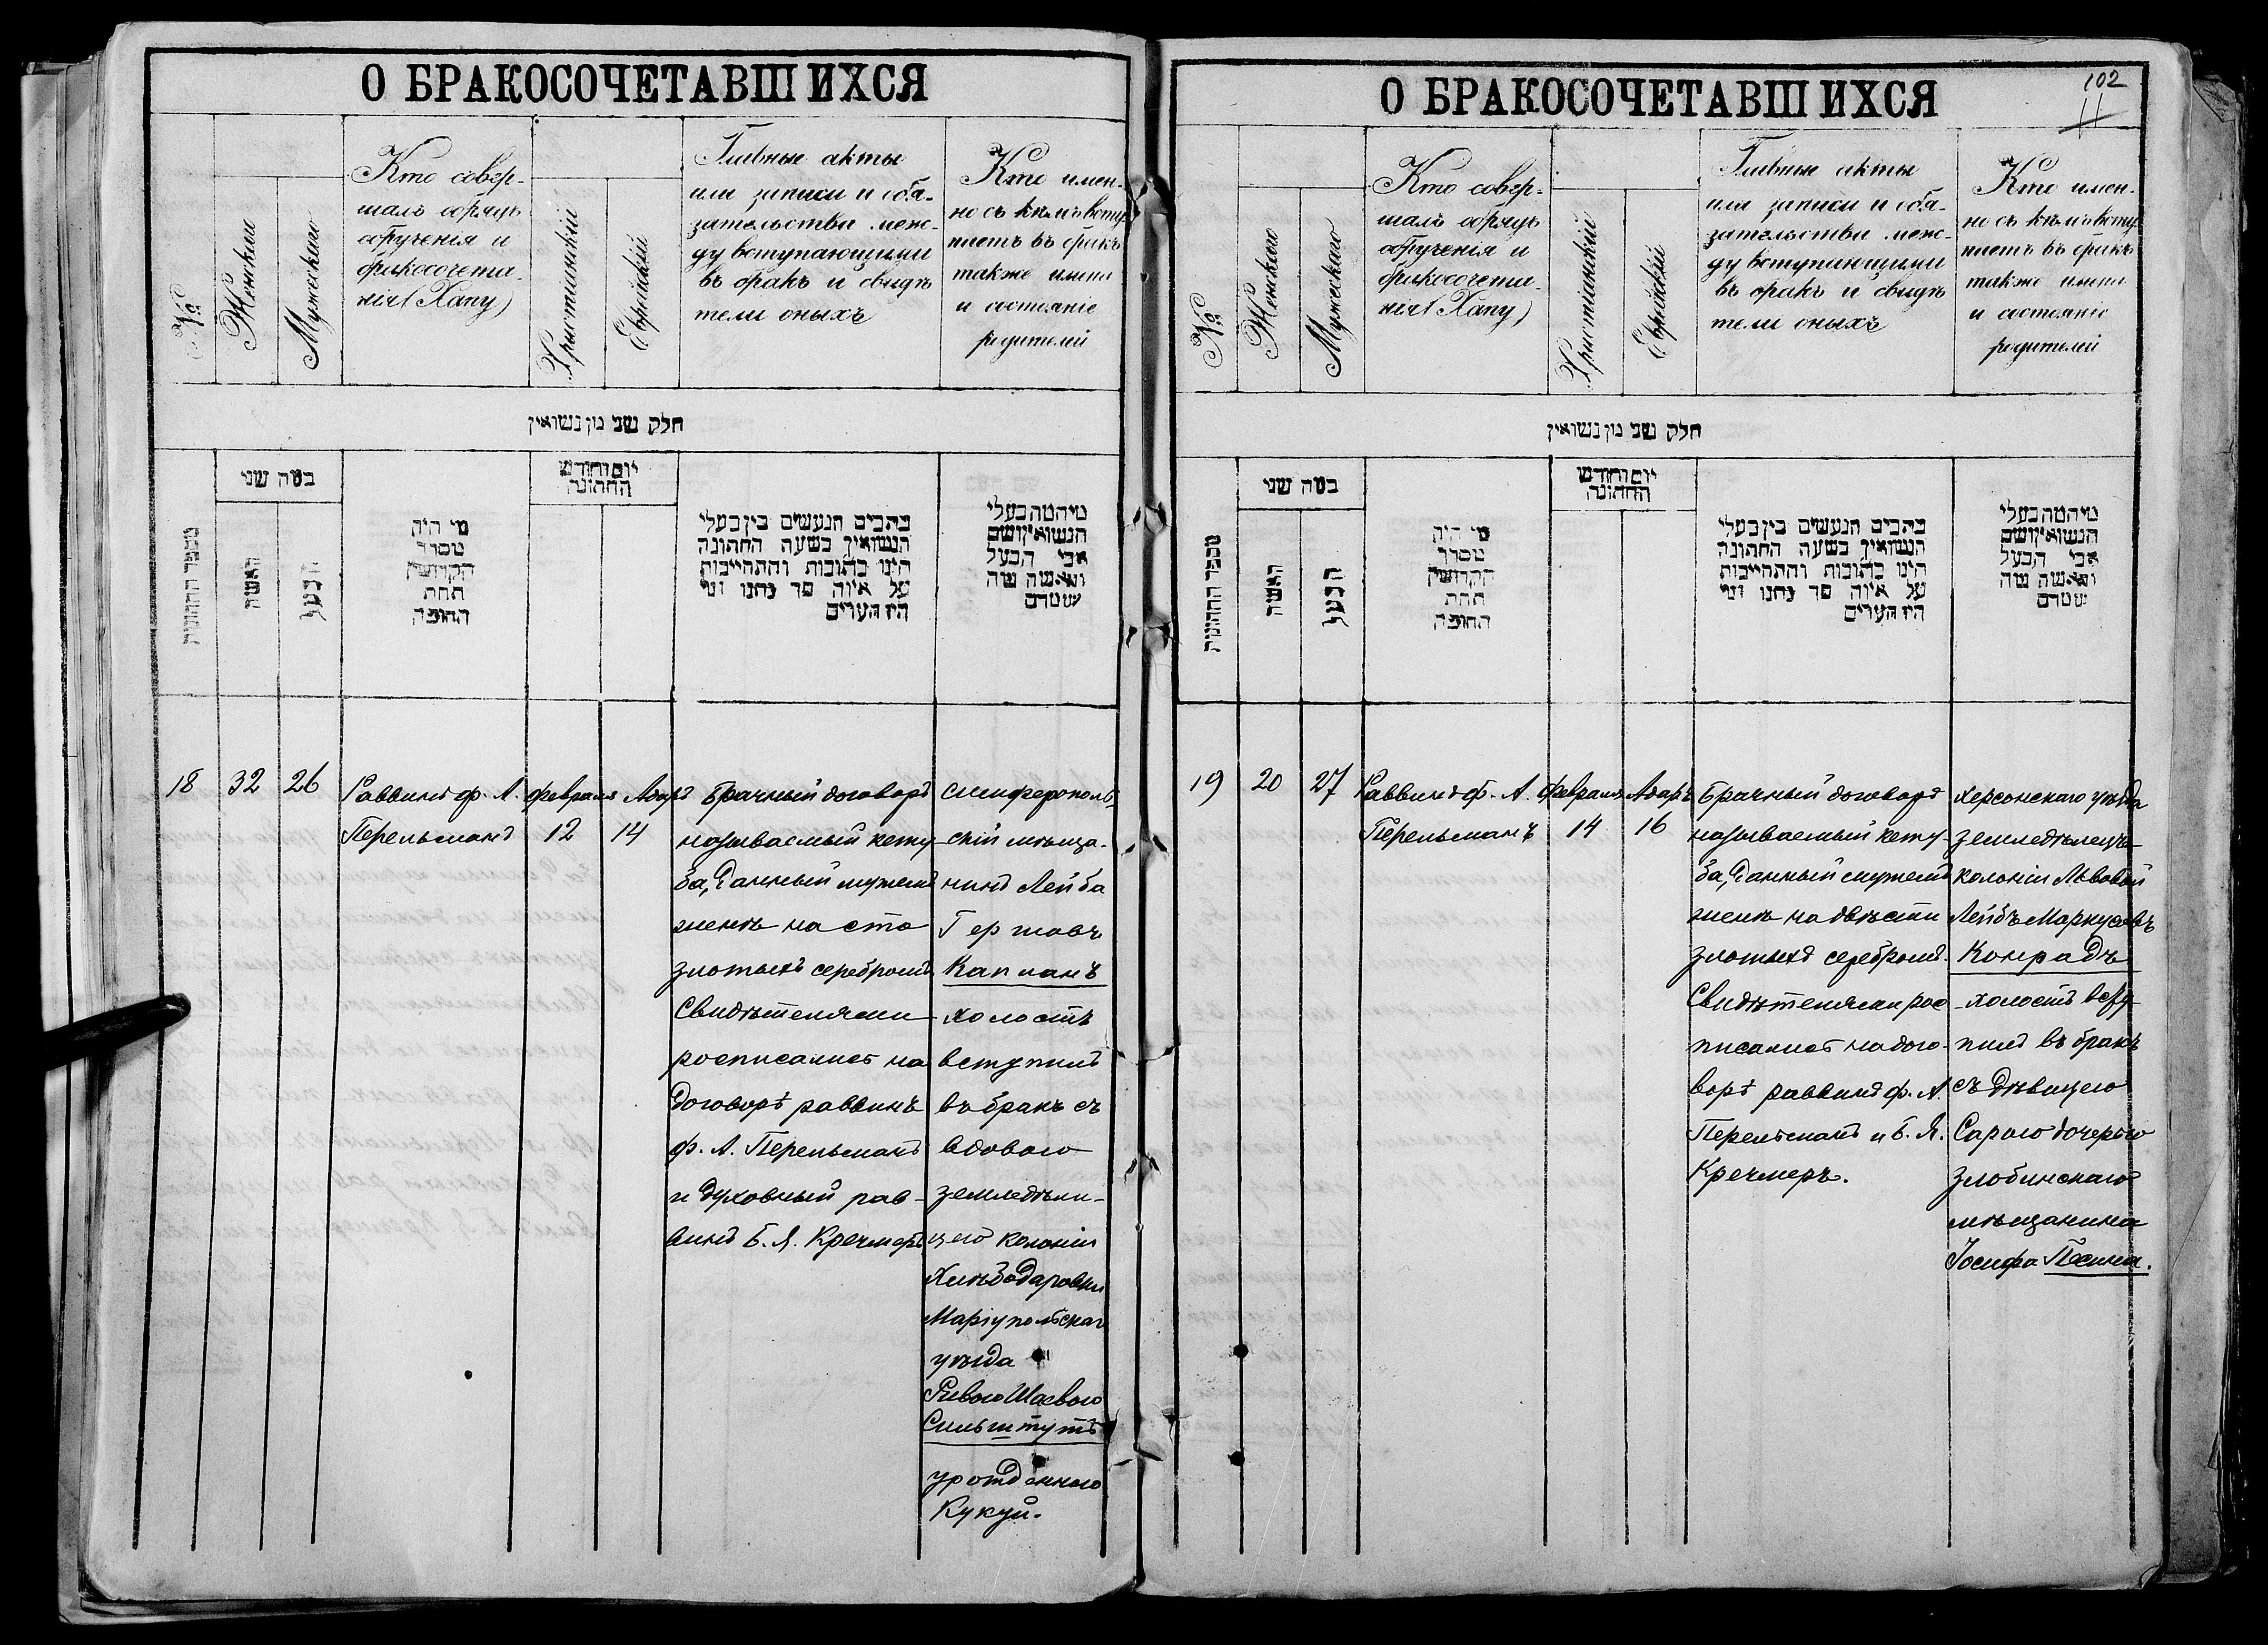 О БРАКОСОЧЕТАВШИХСЯ
№
Женскаго
Мужескаго
Кто совер-
шалъ обрядъ
обрученія и
бракосочета-
нія (Хапу)
Христіанскій
Еврейскій
Главные акты
или записи и обя-
зательства меж-
ду вступающими
въ бракъ и свидѣ
тели оныхъ
Кто имен-
но съ кѣмъ всту
паетъ въ бракъ
также имена
и состояніе
родителей
חלק שני מן נשואין
מספר החתונות
כמה שני
האשה
הבעל
מי היה
מסדר
הקדושין
תחת
החופה
יום וחודש
החתונה
כתבים הנעשים בין בעלי
הנשואין בשעה החתונה
היינו כתובות והתחייבות
על איזה סך נתנו ומי
היו העדים
מיהמה בעלי
הנשואין ושם
אבי הבעל
והאשה מה
שטרם
18
32
26
Раввинъ Ф. А.
Перельманъ
Февраля
12
Адаръ
14
Брачный договоръ
называемый кету
ба, данный мужемъ
женѣ на сто
злотыхъ серебромъ
Свидѣтелями
росписались на
договорѣ раввинъ
Ф. А. Перельманъ
и духовный рав-
винъ Б. Я. Кречмеръ
Симферополь-
скій мѣща-
нинъ Лейба
Гершовъ
Капланъ
холостъ
вступилъ
въ бракъ съ
вдовою
земледѣли-
цею колоніи
Маріупольскаго
уѣзда
Ривою Шаевою
Сильштутъ
урожденною
Кукуй.
О БРАКОСОЧЕТАВШИХСЯ
102
11
№
Женскаго
Мужескаго
Кто совер-
шалъ обрядъ
обрученія и
бракосочета-
нія (Хапу)
Христіанскій
Еврейскій
Главные акты
или записи и обя-
зательства меж-
ду вступающими
въ бракъ и свидѣ
тели оныхъ
Кто имен-
но съ кѣмъ всту
паетъ въ бракъ
также имена
и состояніе
родителей
חלק שני מן נשואין
מספר החתונות
כמה שני
האשה
הבעל
מי היה
מסדר
הקדושין
תחת
החופה
יום וחודש
החתונה
כתבים הנעשים בין בעלי
הנשואין בשעה החתונה
היינו כתובות והתחייבות
על איזה סך נתנו ומי
היו העדים
מיהמה בעלי
הנשואין ושם
אבי הבעל
והאשה מה
שטרם
19
20
27
Раввинъ Ф. А.
Перельманъ
Февраля
14
Адаръ
16
Брачный договоръ
называемый кету-
ба, данный мужемъ
женѣ на двѣсти
злотыхъ серебромъ.
Свидѣтелями рос
писались на дого-
ворѣ раввинъ Ф. А.
Перельманъ и Б. Я.
Кречмеръ.
Херсонскаго уѣзда
земледѣлецъ
колоніи Львовой
Лейбъ Маркусовъ
Конрадъ
холостъ всту-
пилъ въ бракъ
съ дѣвицею
Сарою дочерью
Злобинскаго
мѣщанина
Іосифа Песина.